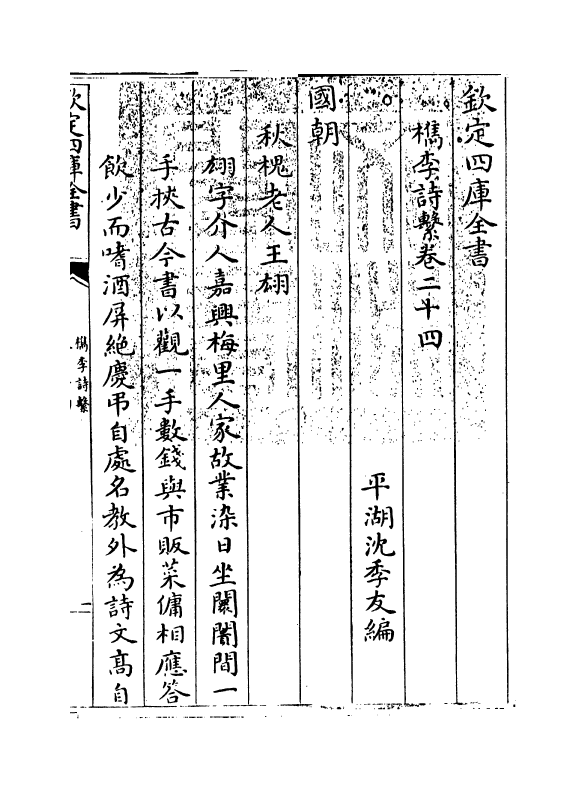 欽定四庫全書
檇李詩繫卷二十四
平湖沈季友編
國朝
秋槐老人王翃
翃字介人嘉興梅里人家故業染日坐闤闠間一
手挾古今書以觀一手數錢與市販菜傭相應答
飲少而嗜酒屏絶慶弔自處名教外為詩文高自
欽定四庫全書
檇李詩繫